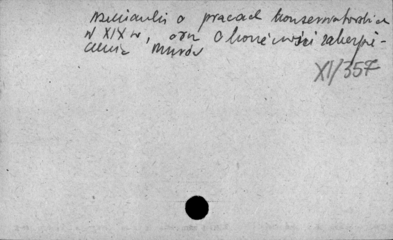 Wzmianki o pracach konserwatorskich
w XIX w, oraz o konieczności zabezpie-
czenia murów
XI/357